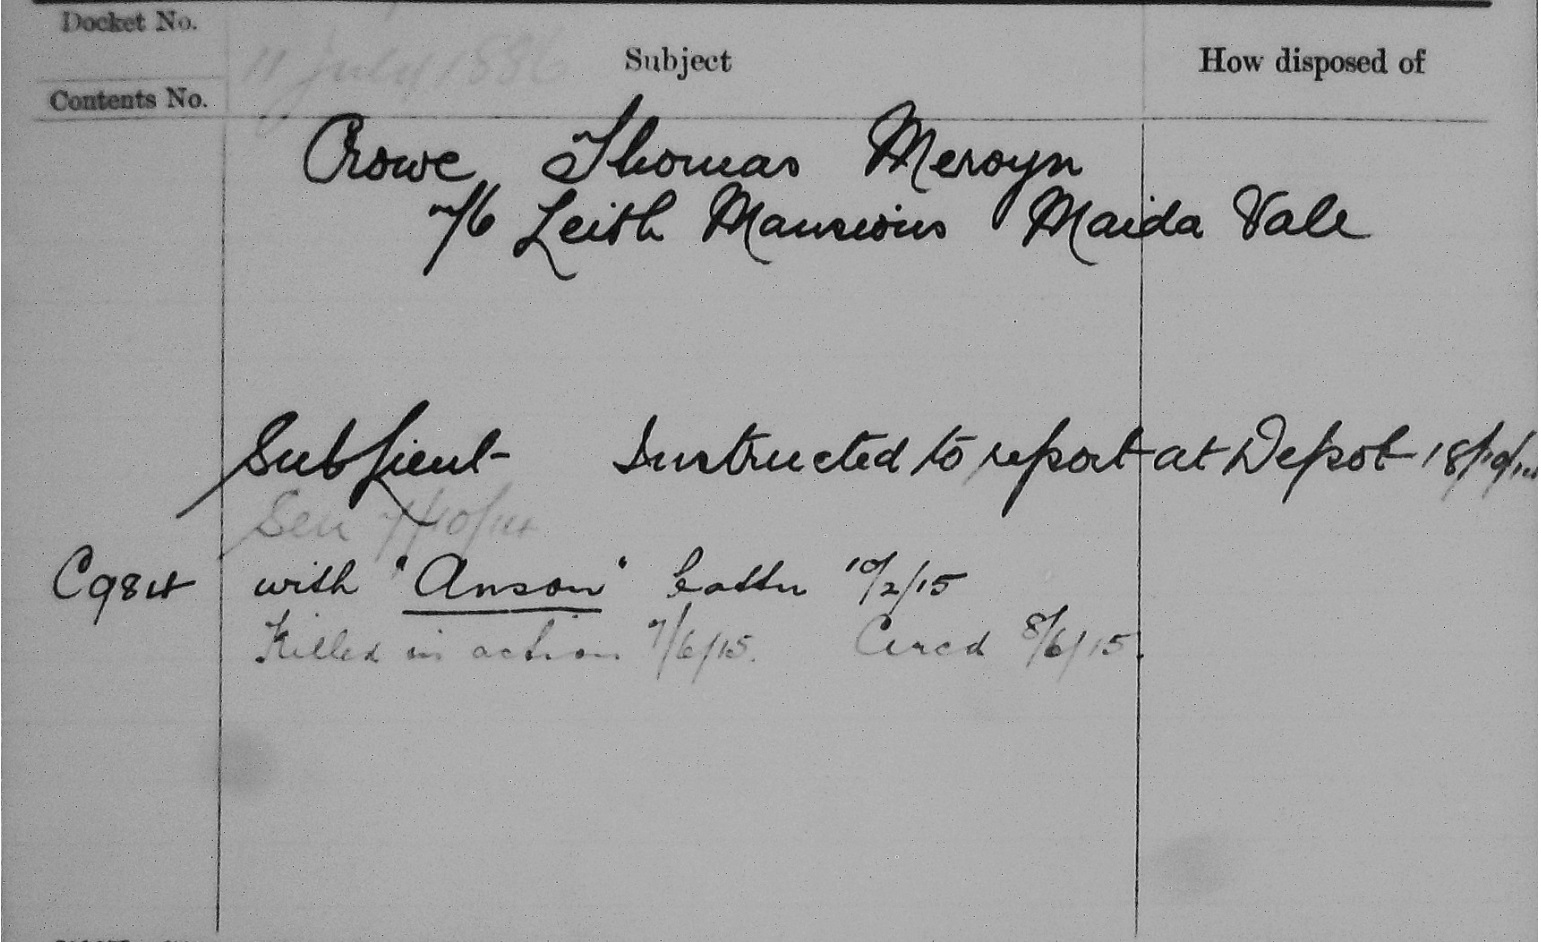 Docket No.
11 July 1886
Subject
How disposed of
Contents No.
Crowe Thomas Mervyn
76 Leith Mansions Maida Vale
Sub Lieut Instructed to report at Depot 18/10/14
Sen 7/10/14
C984 with "Anson" Battn 10/2/15
Killed in action 7/6/15. 8/6/15